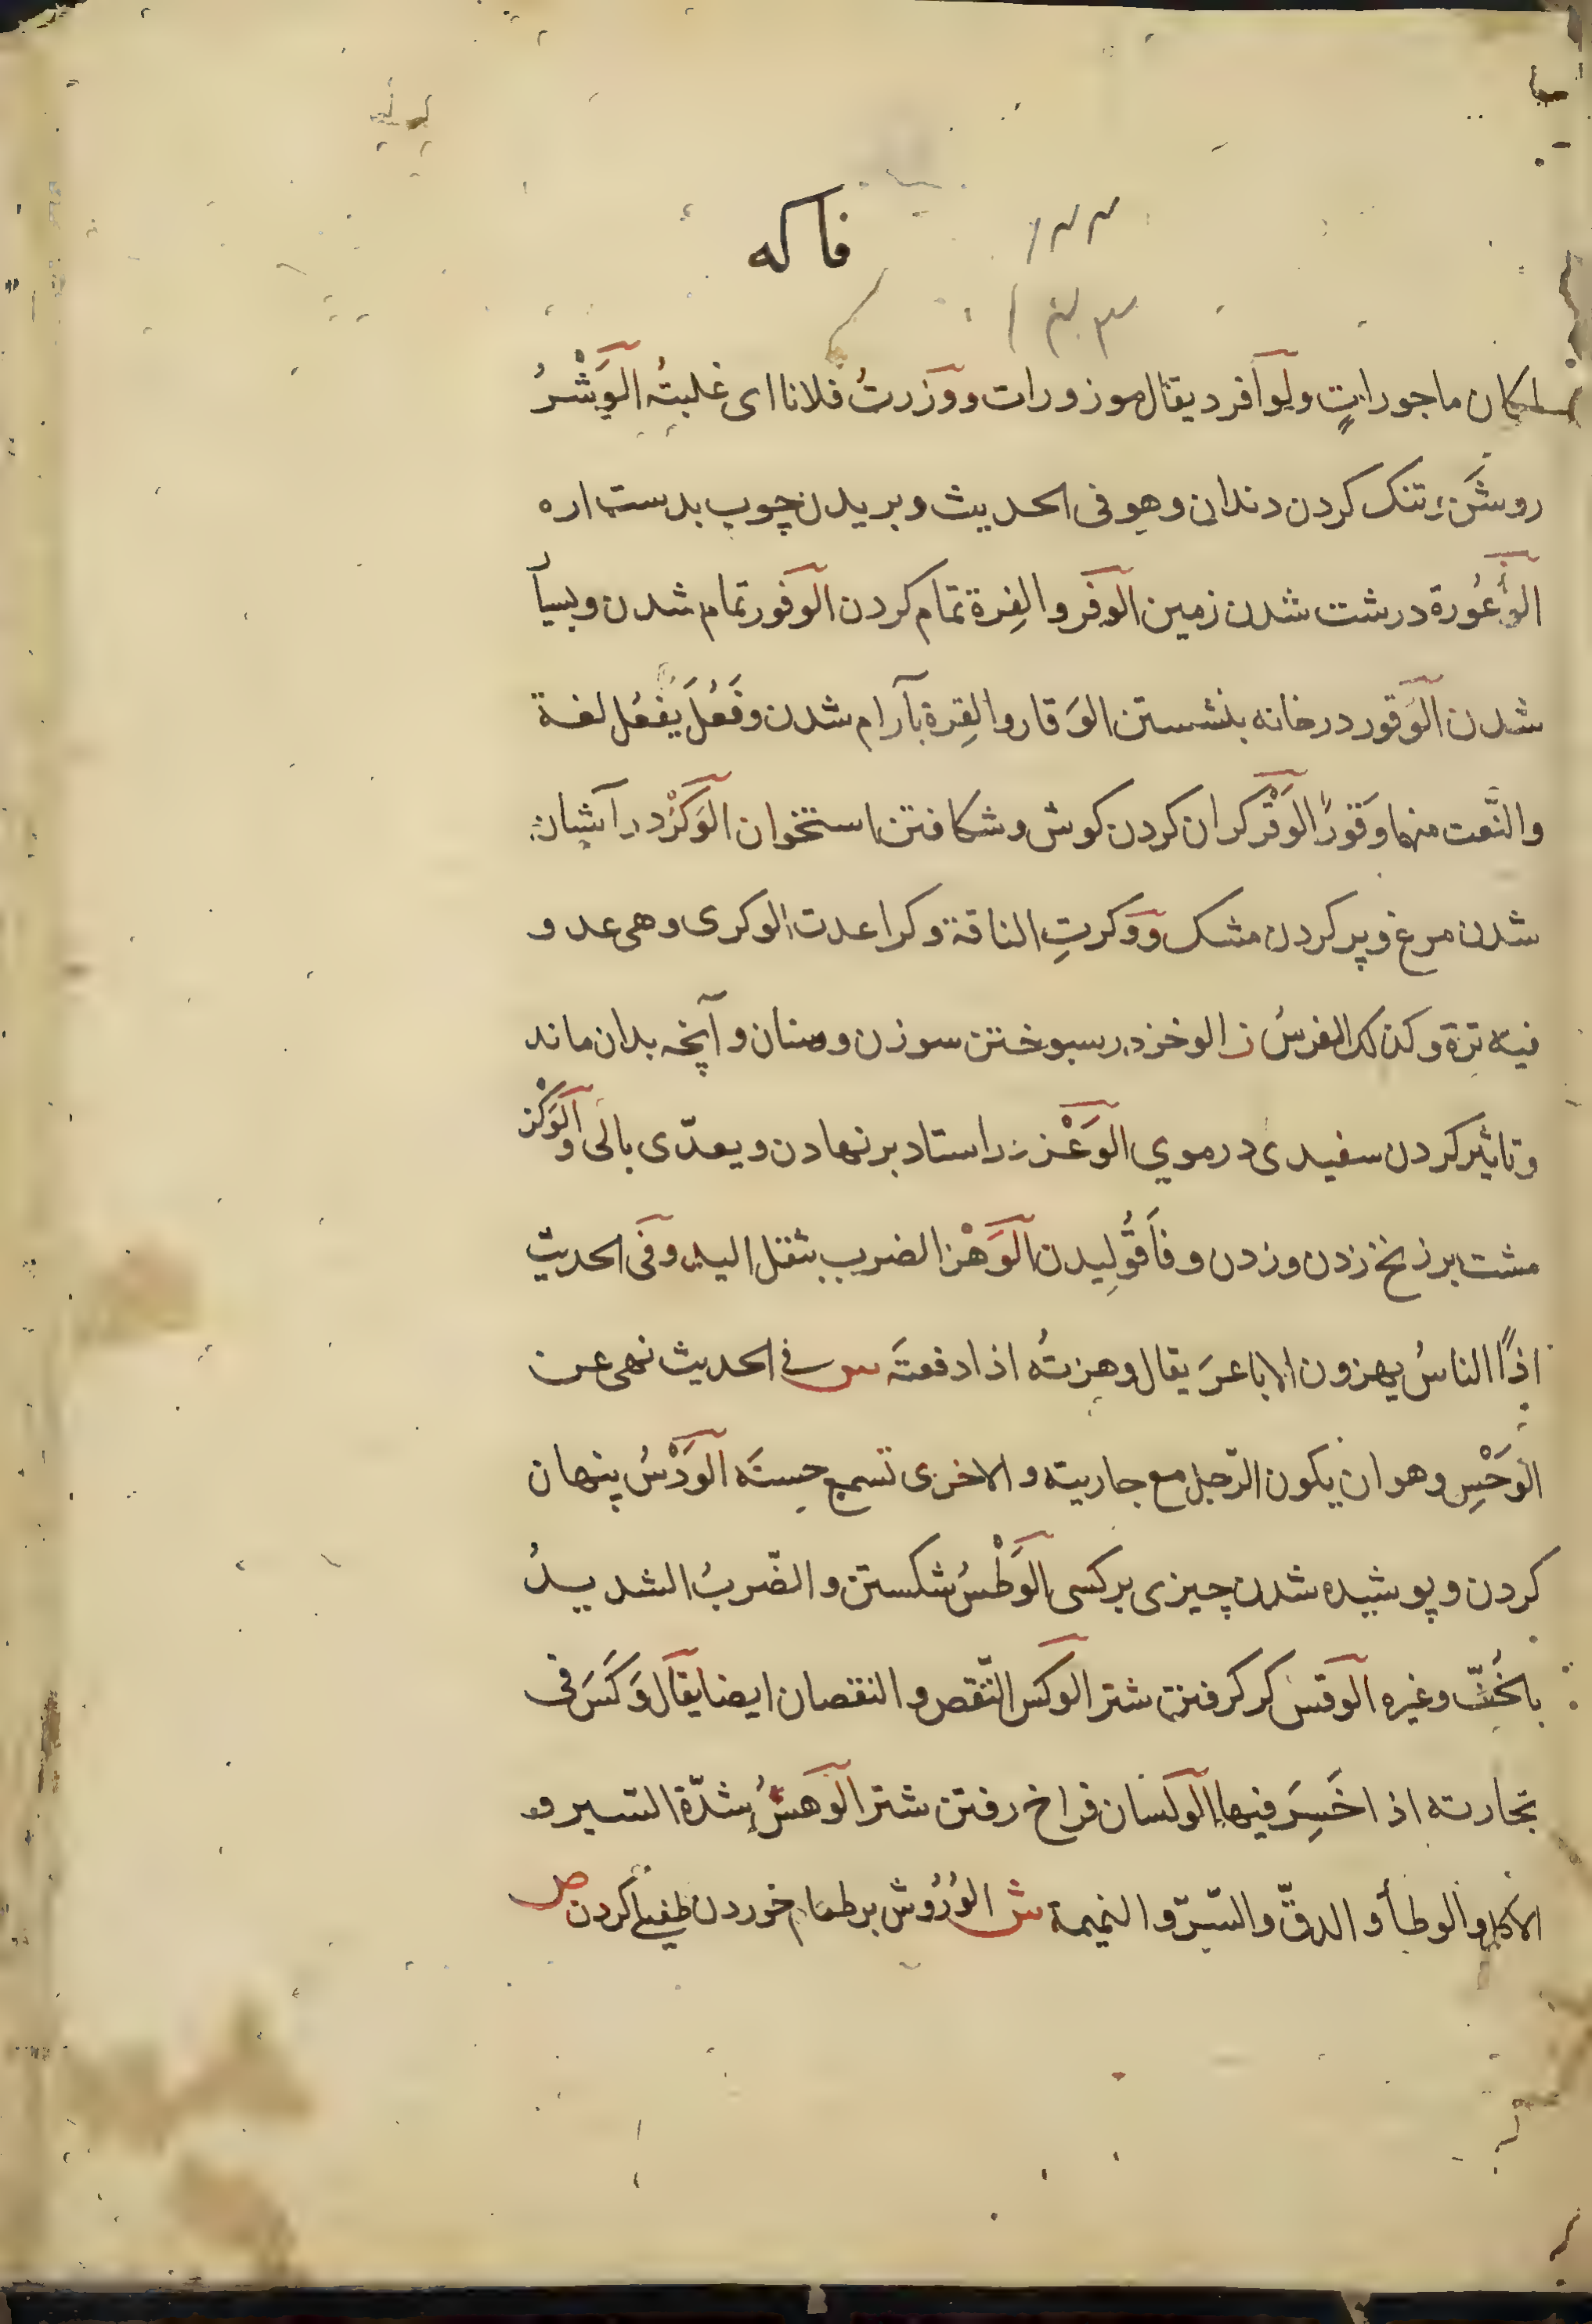 فاکه
لمکان ماجوراتٍ ولو افرد یقال موزورات ووزرتُ فلانا ای غلبتُه الوَشْرُ
روشن و تنک کردن دندان وهو فی الحدیث و بریدن چوب بدست اره
الوُعُورة درشت شدن زمین الوفر والفِرة تمام کردن الوفور تمام شدن و بسیا
شدن الوَقور در خانه بنشستن الوَقار والقِرة بآرام شدن وفَعُلَ یَفعُل لغة
والنَّعت منهما وَقورٌ الوَقْر کران کردن کوش و شکافتن استخوان الوَکْر در آشیان
شدن مرغ و پر کردن مشک ووکرتِ الناقة وکرا عدت الوکری وهی عدو
فیه نزة وکذلک الفرسُ ز الوخز در سبوختن سوزن و سنان و آنچه بدان ماند
و تاثیر کردن سفیدی در موی الوَعْز راستاد بر نهادن و یعدّی بالی والوَکْز
مشت بر زنخ زدن و زدن و فاقُولِیدن الوَهْز الضرب بثقل الید وفی الحدیث
اذا الناسُ یهزون الاباعرَ یقال وهزتُه اذا دفعتَه س فی الحدیث نهی عن
الوَجْسِ وهو ان یکون الرّجل مع جاریته والاخری تسمع حِسَّه الوَدْسُ پنهان
کردن و پوشیده شدن چیزی بر کسی الوَطْسُ شکستن والضّربُ الشدیدُ
بالخُفّ وغیره الوقس کر کرفتن شتر الوکس النّقص والنقصان ایضا یقال وَکَسَ فی
تجارته اذا خَسِرَ فیها الولسان فراخ رفتن شتر الوَهسُ شدّة السیر و
الاکل والوطأ والدقّ والسّرّ والنمیمة ش الوُرُوش بر طعام خوردن طفیلی کردن ص